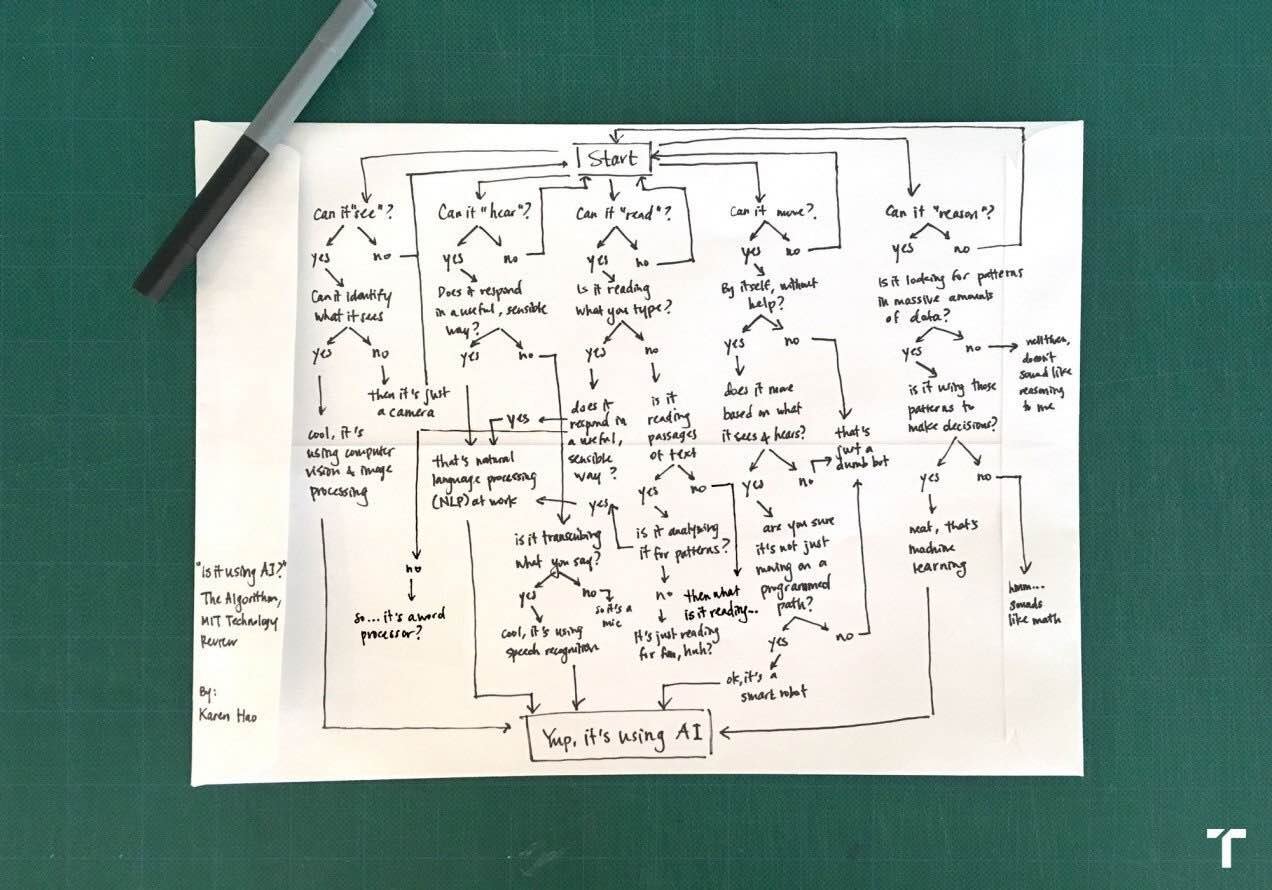 Start
Can it "see"?
yes
no
Can it identify
what it sees
yes
no
then it's just
a camera
cool, it's
using computer
vision & image
processing
Can it "hear"?
yes
no
Does it respond
in a useful, sensible
way?
yes
no
that's natural
language processing
(NLP) at work
is it transcribing
what you say?
yes
no
so it's a
mic
cool, it's using
speech recognition
Can it "read"?
yes
no
Is it reading
what you type?
yes
no
does it
respond in
a useful,
sensible
way?
yes
no
so... it's a word
processor?
is it
reading
passages
of text
yes
no
is it analyzing
it for patterns?
yes
no
it's just reading
for fun, huh?
then what
is it reading...
Can it move?
yes
no
By itself, without
help?
yes
no
does it move
based on what
it sees & hears?
yes
no
that's
just a
dumb bot
are you sure
it's not just
moving on a
programmed
path?
yes
no
ok, it's a
smart robot
Can it "reason"?
yes
no
Is it looking for patterns
in massive amounts
of data?
yes
no
well then,
doesn't
sound like
reasoning
to me
is it using those
patterns to
make decisions?
yes
no
neat, that's
machine
learning
hmm...
sounds
like math
Yup, it's using AI
"Is it using AI?"
The Algorithm,
MIT Technology
Review
By:
Karen Hao